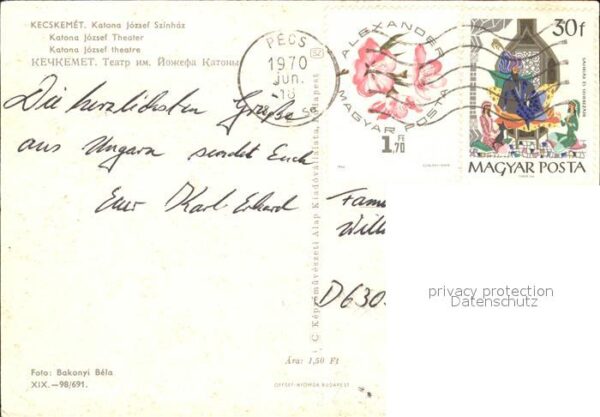 KECSKEMÉT. Katona József Színház
Katona József Theater
Katona József theatre
КЕЧКЕМЕТ. Театр им. Йожефа Катоны
PÉCS
1970
JUN.
18
ALEXANDER
MAGYAR POSTA
1,70 Ft
30f
MAGYAR POSTA
Die herzlichsten Grüße
aus Ungarn sendet Euch
Euer Karl Erhard
Fam
Will
D 630
privacy protection
Datenschutz
Képzőművészeti Alap Kiadóvállalata, Budapest
Ára: 1,50 Ft
Foto: Bakonyi Béla
XIX.—98/691.
OFFSET-NYOMDA BUDAPEST